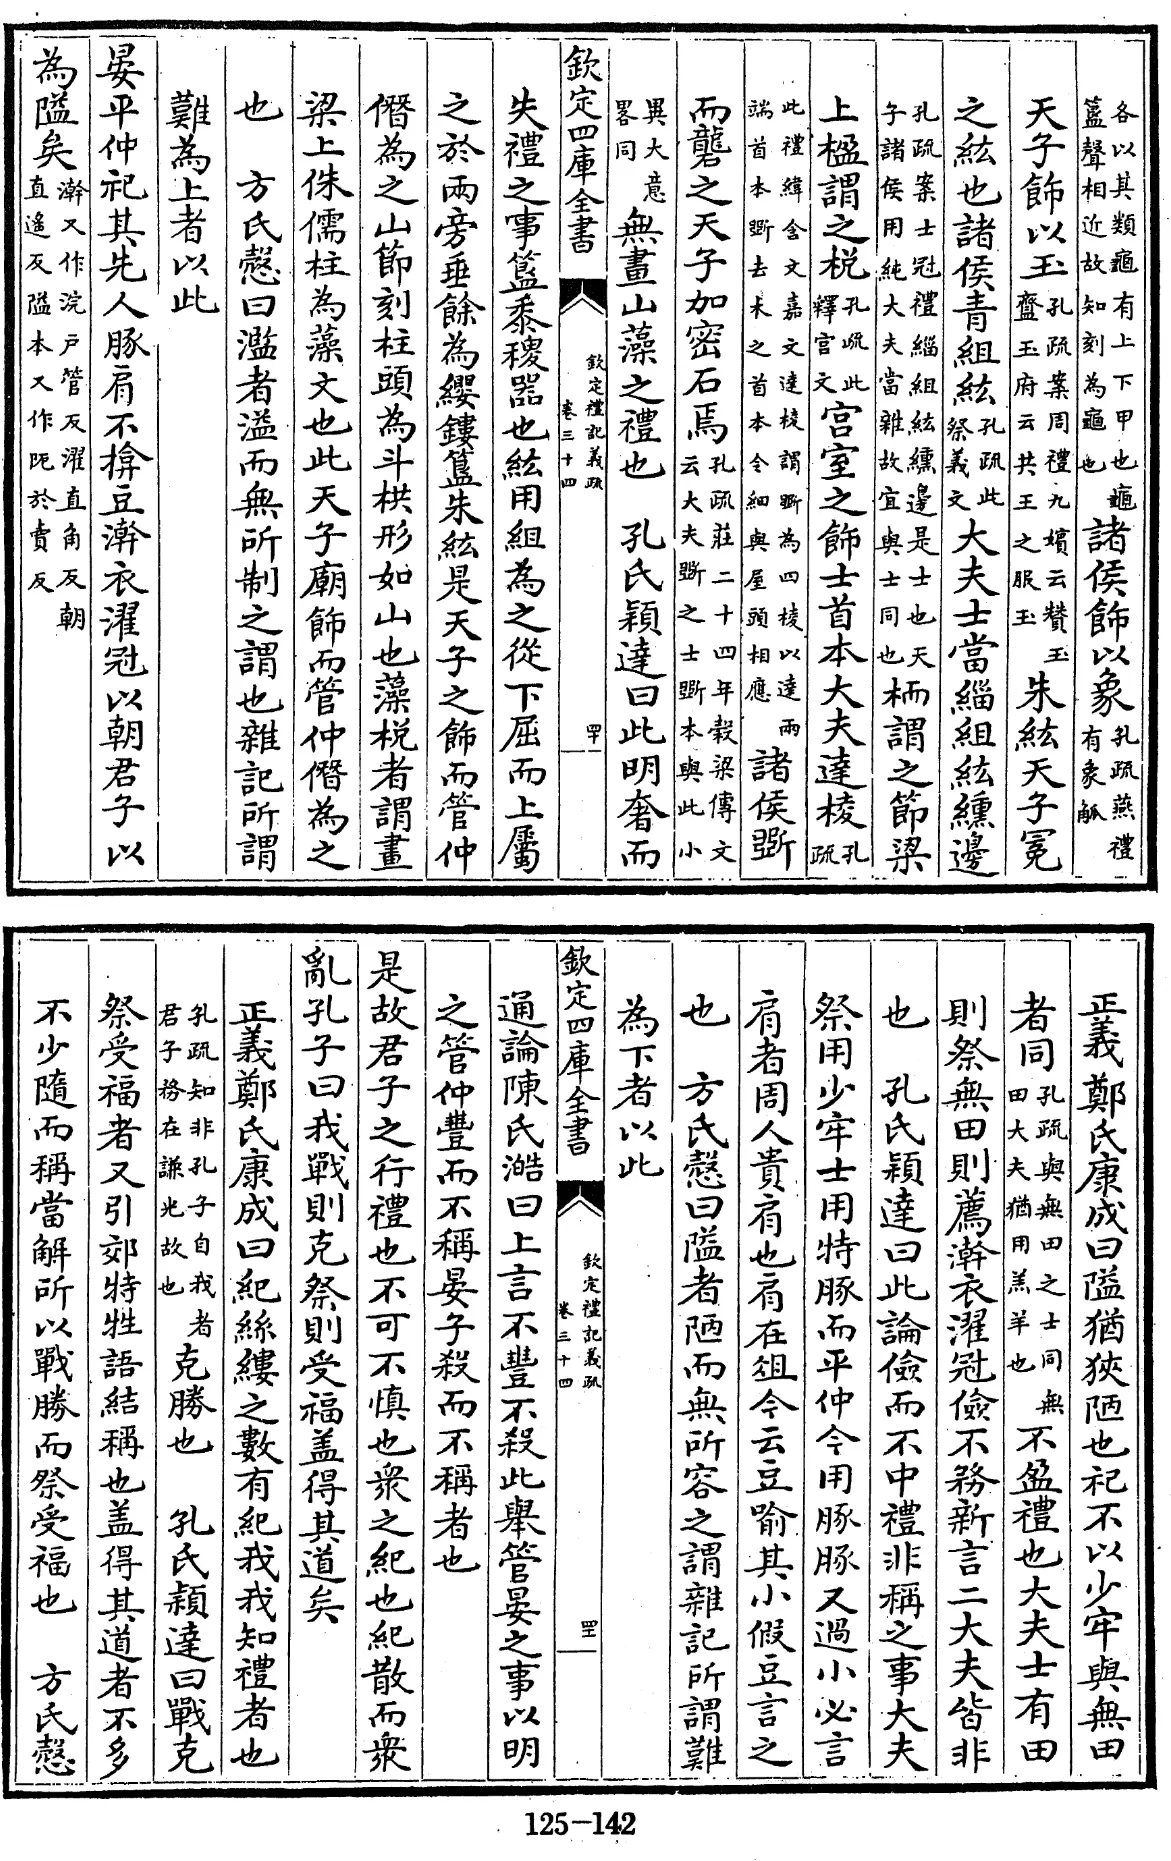 各以其類龜有上下甲也龜
簋聲相近故知刻為龜也諸侯飾以象孔疏燕禮
有象觚
天子飾以玉孔疏案周禮九嬪云贊玉
齍玉府云共王之服玉朱紘天子冕
之紘也諸侯青組紘孔疏此
祭義文大夫士當緇組紘纁邊
孔疏案士冠禮緇組紘纁邊是士也天
子諸侯用純大夫當雜故宜與士同也栭謂之節梁
上楹謂之梲孔疏此
釋宫文宫室之飾士首本大夫達棱孔
疏
此禮緯含文嘉文達棱謂斲為四棱以達兩
端首本斲去木之首本令細與屋頭相應諸侯斲
而礱之天子加密石焉孔疏莊二十四年穀梁傳文
云大夫斲之士斲本與此小
異大意
畧同無畫山藻之禮也　孔氏穎達曰此明奢而
欽定四庫全書　欽定禮記義疏
卷三十四　四十
失禮之事簋黍稷器也紘用組為之從下屈而上屬
之於兩旁垂餘為纓鏤簋朱紘是天子之飾而管仲
僭為之山節刻柱頭為斗栱形如山也藻梲者謂畫
梁上侏儒柱為藻文也此天子廟飾而管仲僭為之
也　方氏慤曰濫者溢而無所制之謂也雜記所謂
難為上者以此
晏平仲祀其先人豚肩不揜豆澣衣濯冠以朝君子以
為隘矣澣又作浣戶管反濯直角反朝
直遙反隘本又作阨於賣反
正義鄭氏康成曰隘猶狹陋也祀不以少牢與無田
者同孔疏與無田之士同無
田大夫猶用羔羊也不盈禮也大夫士有田
則祭無田則薦澣衣濯冠儉不務新言二大夫皆非
也　孔氏穎達曰此論儉而不中禮非稱之事大夫
祭用少牢士用特豚而平仲今用豚豚又過小必言
肩者周人貴肩也肩在俎今云豆喻其小假豆言之
也　方氏慤曰隘者陋而無所容之謂雜記所謂難
為下者以此
欽定四庫全書　欽定禮記義疏
卷三十四　四十一
通論陳氏澔曰上言不豐不殺此舉管晏之事以明
之管仲豐而不稱晏子殺而不稱者也
是故君子之行禮也不可不慎也衆之紀也紀散而衆
亂孔子曰我戰則克祭則受福盖得其道矣
正義鄭氏康成曰紀絲縷之數有紀我我知禮者也
孔疏知非孔子自我者
君子務在謙光故也克勝也　孔氏穎達曰戰克
祭受福者又引郊特牲語結稱也盖得其道者不多
不少隨而稱當解所以戰勝而祭受福也　方氏慤
125-142